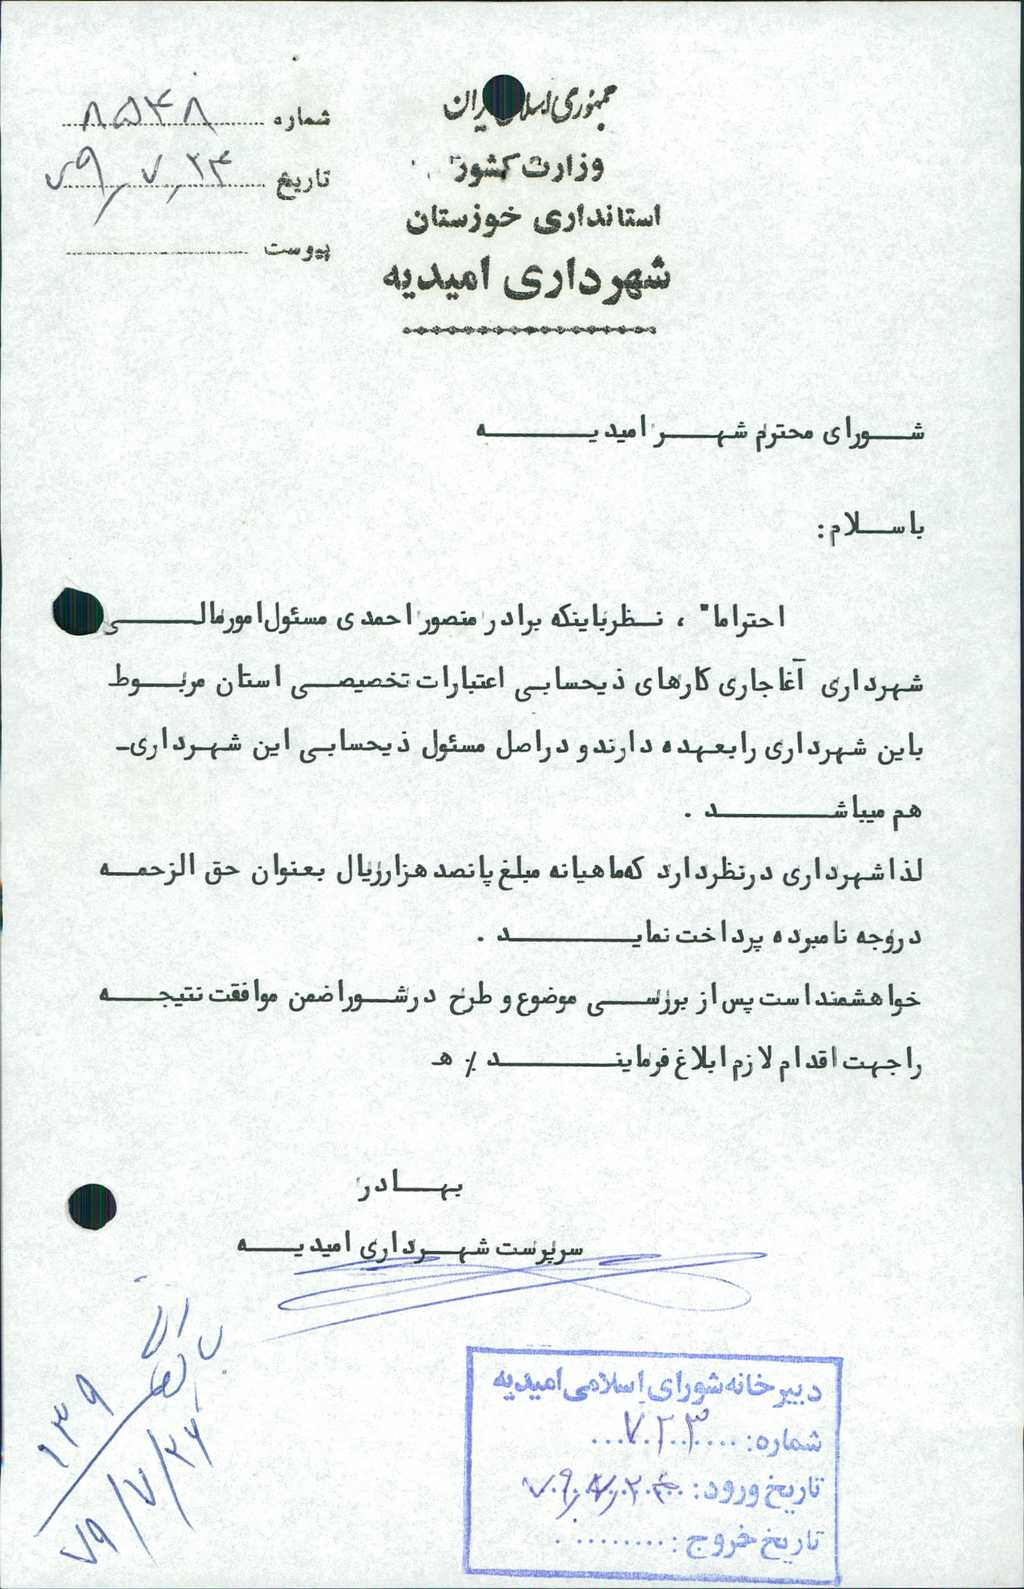 جمهوری اسلامی ایران
وزارت کشور
استانداری خوزستان
شهرداری امیدیه
شماره ۸۵۴۸
تاریخ ۷۹٫۷٫۲۴
پیوست
شورای محترم شهر امیدیه
باسلام:
احتراما" ، نظرباینکه برادر منصور احمدی مسئول امورمالی
شهرداری آغاجاری کارهای ذیحسابی اعتبارات تخصیصی استان مربوط
باین شهرداری رابعهده دارند و دراصل مسئول ذیحسابی این شهرداری-
هم میباشد .
لذاشهرداری درنظردارد که ماهیانه مبلغ پانصد هزارریال بعنوان حق الزحمه
دروجه نامبرده پرداخت نماید .
خواهشمنداست پس از بررسی موضوع و طرح درشوراضمن موافقت نتیجه
راجهت اقدام لازم ابلاغ فرمایند ٪ ه
بهادر
سرپرست شهرداری امیدیه
۱۳۹
۷۹/۷/۲۶
دبیرخانه شورای اسلامی امیدیه
شماره: ۷۲۳
تاریخ ورود:
تاریخ خروج: